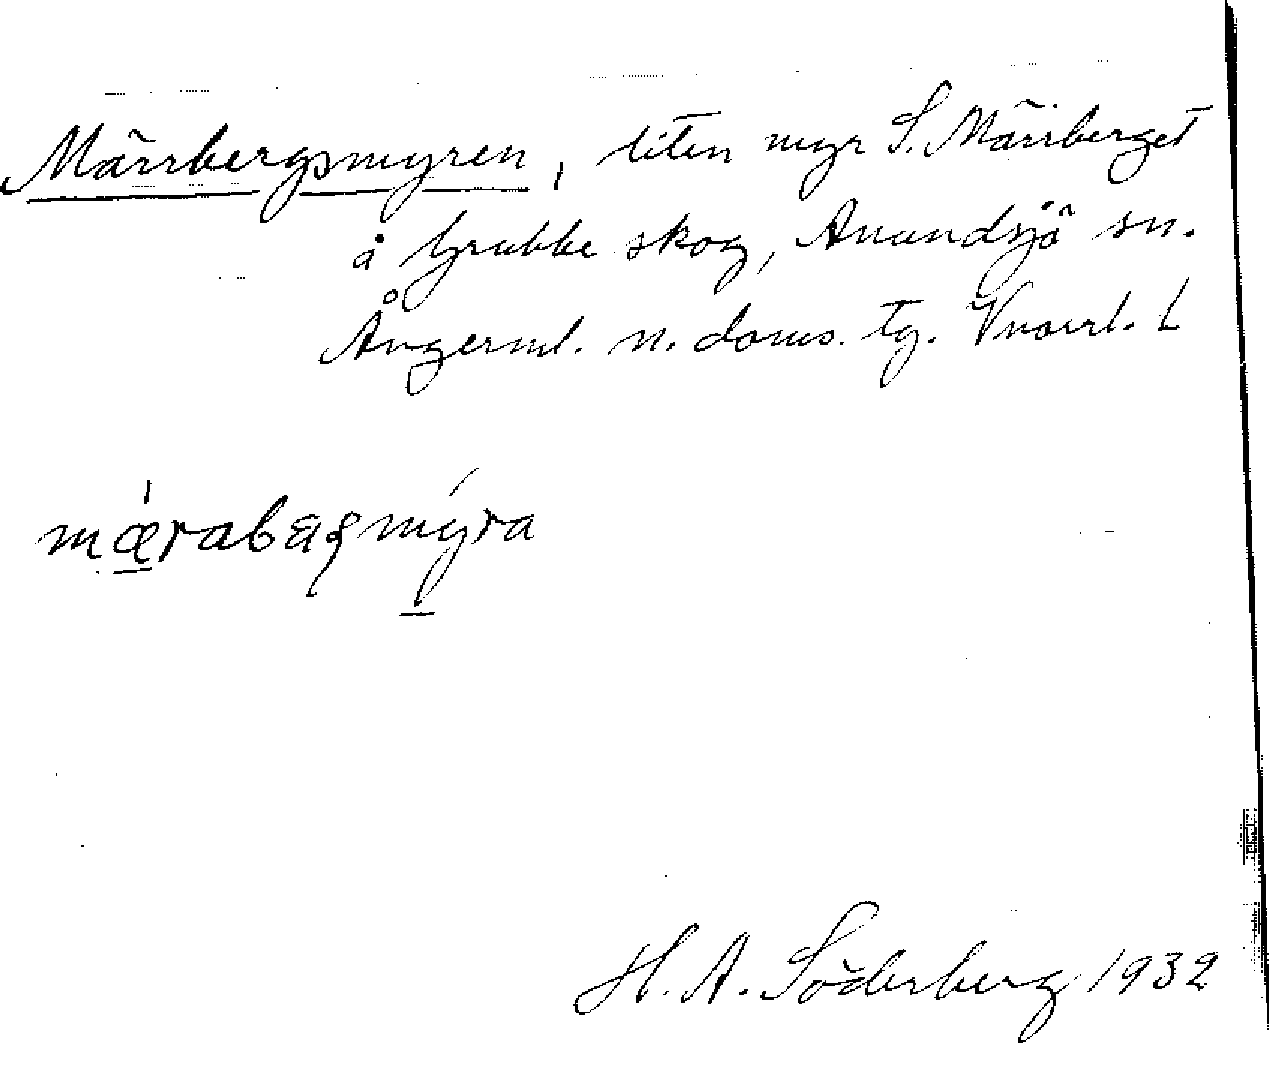 Märrbergsmyren, liten myr S. Märrberget
å Grubbe skog, Anundsjö sn.
Ångerml. n. doms. tg. Vnorrl. L
mæ̀rabærsmýra
H. A. Söderberg 1932